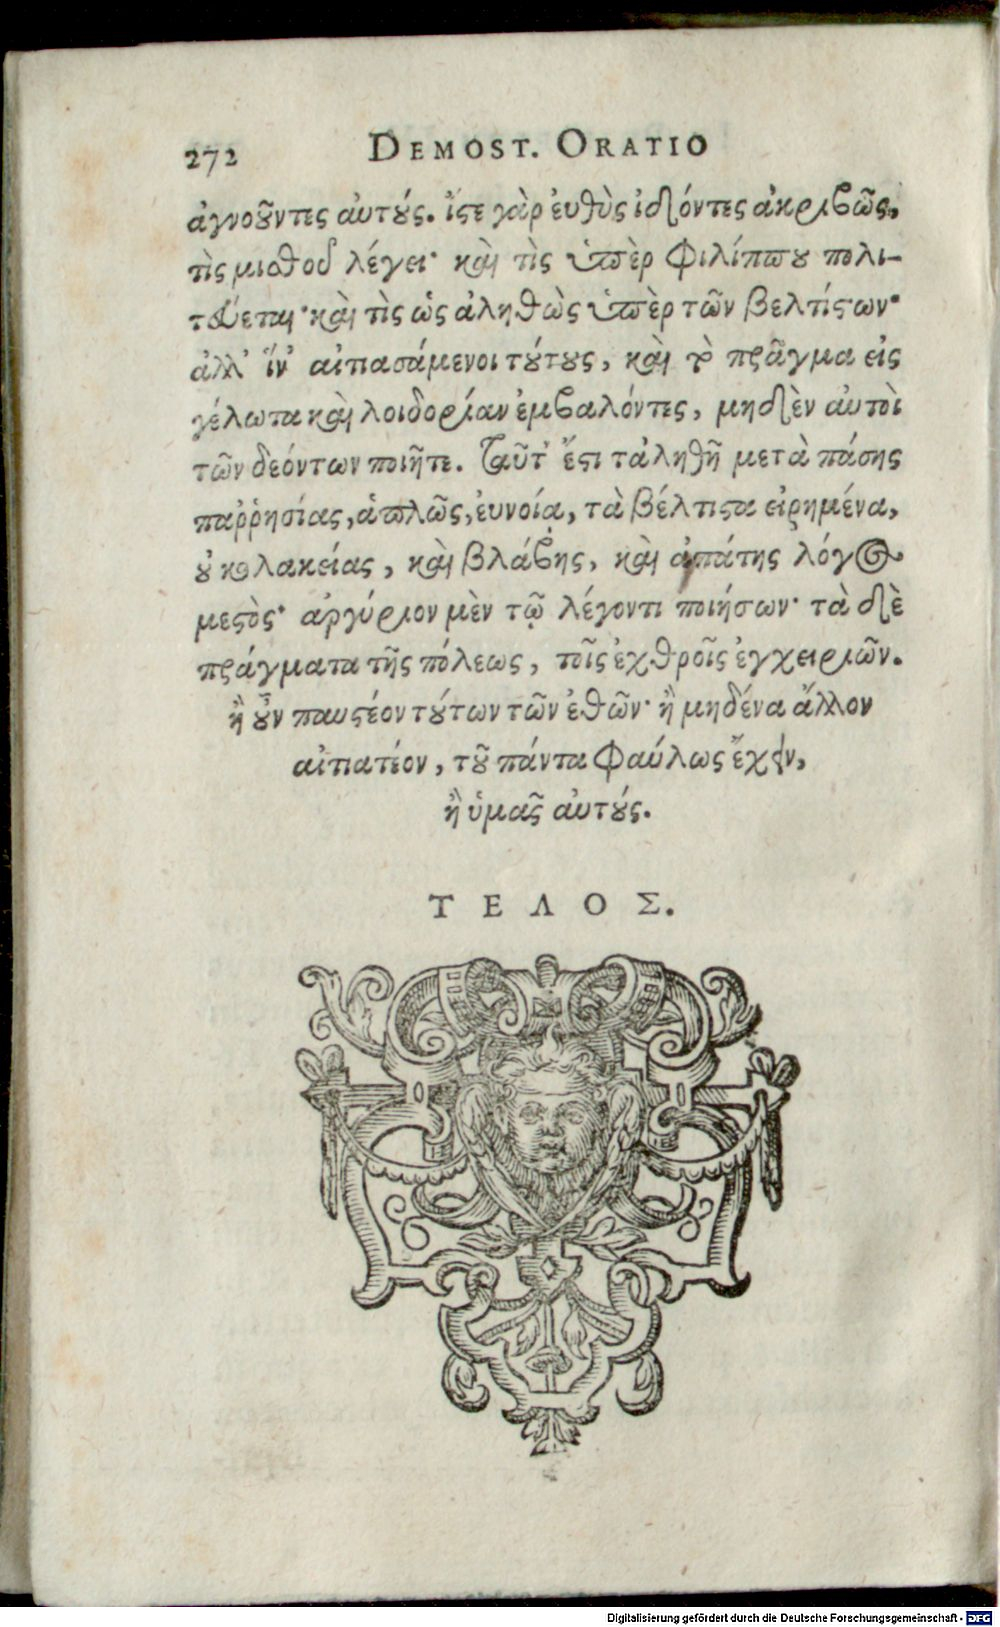 272 DEMOST. ORATIO
ἀγνοοῦντες αὐτούς. ἴστε γὰρ εὐθὺς ἰδόντες ἀκριβῶς,
τὶς μισθοῦ λέγει· καὶ τὶς ὑπὲρ Φιλίππου πολι-
τεύεται· καὶ τὶς ὡς ἀληθῶς ὑπὲρ τῶν βελτίστων·
ἀλλ' ἵν' αἰτιασάμενοι τούτους, καὶ τὸ πρᾶγμα εἰς
γέλωτα καὶ λοιδορίαν ἐμβαλόντες, μηδὲν αὐτοὶ
τῶν δεόντων ποιῆτε. Ταῦτ' ἔστι τἀληθῆ μετὰ πάσης
παῤῥησίας, ἁπλῶς, εὐνοίᾳ, τὰ βέλτιστα εἰρημένα,
οὐ κολακείας, καὶ βλάβης, καὶ ἀπάτης λόγος
μεστὸς· ἀργύριον μὲν τῷ λέγοντι ποιήσων· τὰ δὲ
πράγματα τῆς πόλεως, τοῖς ἐχθροῖς ἐγχειριῶν.
ἢ οὖν παυστέον τούτων τῶν ἐθῶν· ἢ μηδένα ἄλλον
αἰτιατέον, τοῦ πάντα φαύλως ἔχειν,
ἢ ὑμᾶς αὐτούς.
ΤΕΛΟΣ.
Digitalisierung gefördert durch die Deutsche Forschungsgemeinschaft - DFG